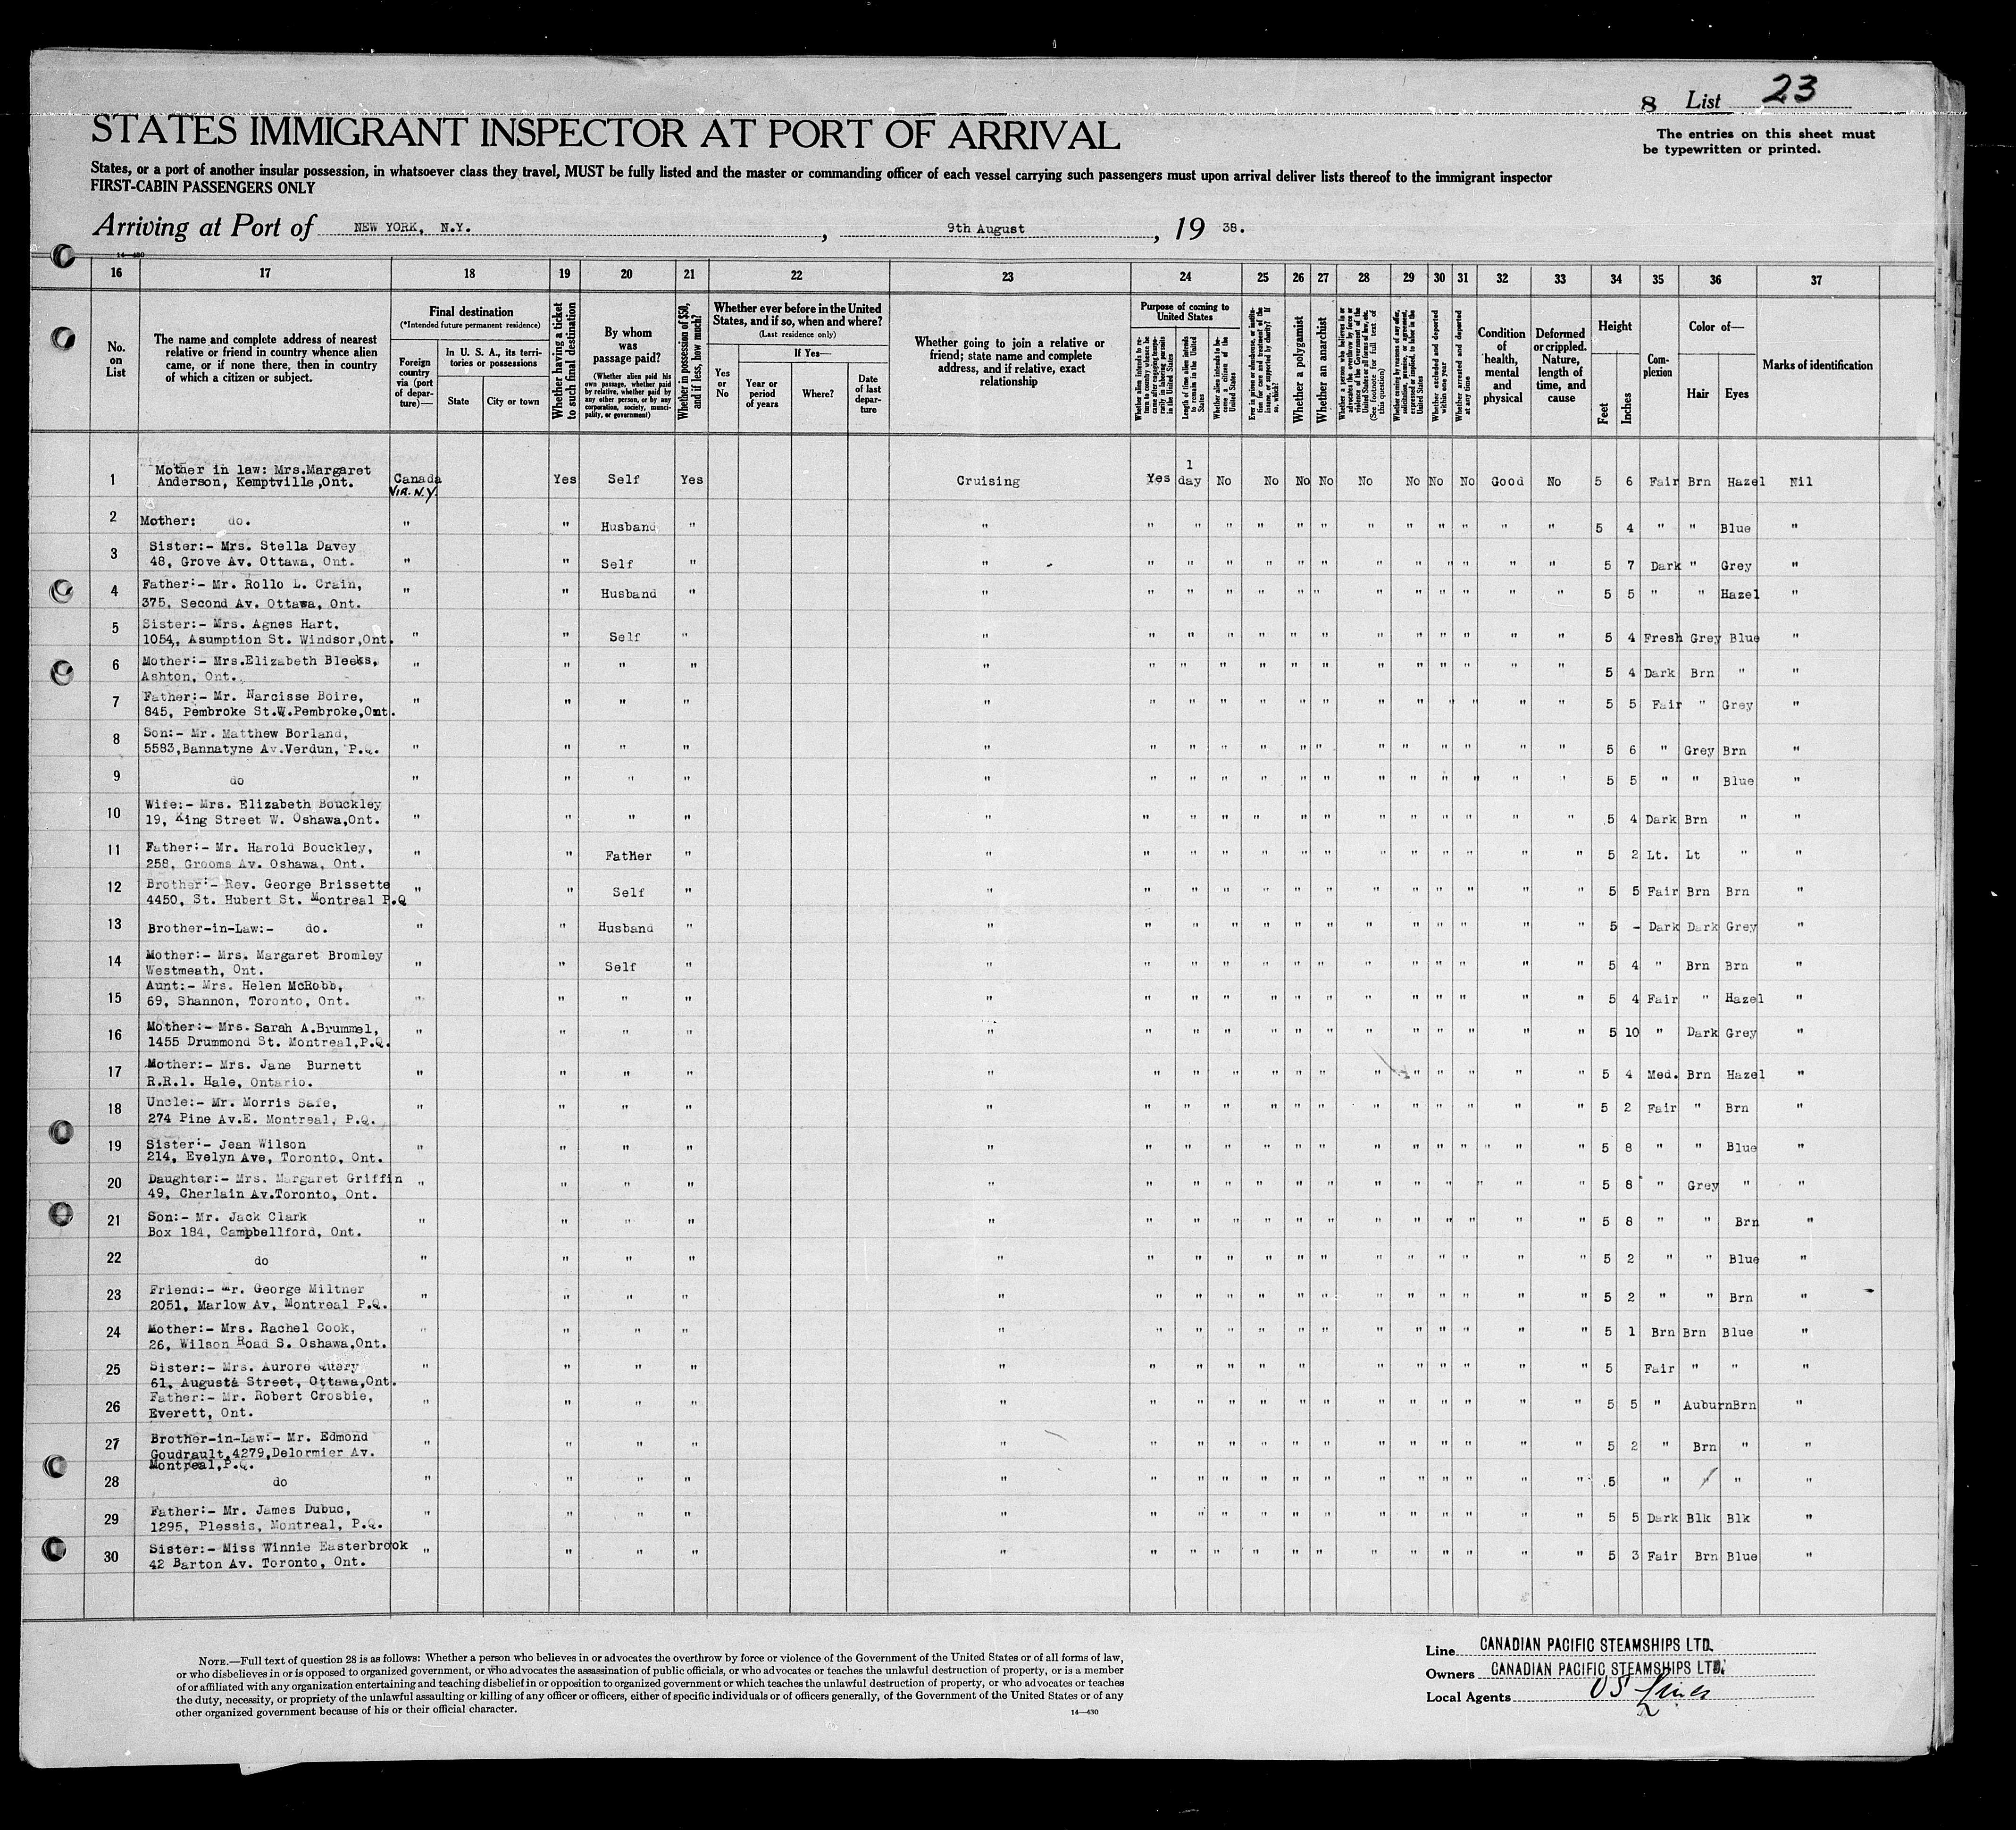 8 List 23
STATES IMMIGRANT INSPECTOR AT PORT OF ARRIVAL
The entries on this sheet must
be typewritten or printed.
States, or a port of another insular possession, in whatsoever class they travel, MUST be fully listed and the master or commanding officer of each vessel carrying such passengers must upon arrival deliver lists thereof to the immigrant inspector
FIRST-CABIN PASSENGERS ONLY
Arriving at Port of NEW YORK, N.Y. , 9th August , 19 38.
14—430
16 17 18 19 20 21 22 23 24 25 26 27 28 29 30 31 32 33 34 35 36 37
No. on List
The name and complete address of nearest relative or friend in country whence alien came, or if none there, then in country of which a citizen or subject.
Final destination
(*Intended future permanent residence)
Foreign country via (port of departure)—
In U. S. A., its territories or possessions
State
City or town
Whether having a ticket to such final destination
By whom was passage paid?
(Whether alien paid his own passage, whether paid by relative, whether paid by any other person, or by any corporation, society, municipality, or government)
Whether in possession of $50, and if less, how much?
Whether ever before in the United States, and if so, when and where?
(Last residence only)
Yes or No
If Yes—
Year or period of years
Where?
Date of last departure
Whether going to join a relative or friend; state name and complete address, and if relative, exact relationship
Purpose of coming to United States
Whether alien intends to return to country whence he came after engaging temporarily in laboring pursuits in the United States
Length of time alien intends to remain in the United States
Whether alien intends to become a citizen of the United States
Ever in prison or almshouse, or institution for care and treatment of the insane, or supported by charity? If so, which?
Whether a polygamist
Whether an anarchist
Whether a person who believes in or advocates the overthrow by force or violence of the Government of the United States or all forms of law, etc. (See footnote for full text of this question)
Whether coming by reasons of any offer, solicitation, promise, or agreement, expressed or implied, to labor in the United States
Whether excluded and deported within one year
Whether arrested and deported at any time
Condition of health, mental and physical
Deformed or crippled. Nature, length of time, and cause
Height
Feet
Inches
Complexion
Color of—
Hair
Eyes
Marks of identification
1 Mother in law: Mrs.Margaret
Anderson, Kemptville,Ont. Canada Yes Self Yes Cruising Yes 1 day No No No No No No No No Good No 5 6 Fair Brn Hazel Nil
VIA. N.Y.
2 Mother: do. " " Husband " " " " " " " " " " " " " " 5 4 " " Blue "
3 Sister:- Mrs. Stella Davey
48, Grove Av. Ottawa, Ont. " " Self " " " " " " " " " " " " " " 5 7 Dark " Grey "
4 Father:- Mr. Rollo L. Crain,
375, Second Av. Ottawa, Ont. " " Husband " " " " " " " " " " " " " " 5 5 " " Hazel "
5 Sister:- Mrs. Agnes Hart,
1054, Asumption St. Windsor,Ont. " " Self " " " " " " " " " " " " " " 5 4 Fresh Grey Blue "
6 Mother:- Mrs.Elizabeth Bleeks,
Ashton, Ont. " " " " " " " " " " " " " " " " " 5 4 Dark Brn " "
7 Father:- Mr. Narcisse Boire,
845, Pembroke St.W.Pembroke,Ont. " " " " " " " " " " " " " " " " " 5 5 Fair " Grey "
8 Son:- Mr. Matthew Borland,
5583,Bannatyne Av.Verdun, P.Q. " " " " " " " " " " " " " " " " " 5 6 " Grey Brn "
9 do " " " " " " " " " " " " " " " " " 5 5 " " Blue "
10 Wife:- Mrs. Elizabeth Bouckley
19, King Street W. Oshawa,Ont. " " " " " " " " " " " " " " " " " 5 4 Dark Brn " "
11 Father:- Mr. Harold Bouckley,
258, Grooms Av. Oshawa, Ont. " " Father " " " " " " " " " " " " " " 5 2 Lt. Lt " "
12 Brother:- Rev. George Brissette
4450, St. Hubert St. Montreal P.Q " " Self " " " " " " " " " " " " " " 5 5 Fair Brn Brn "
13 Brother-in-Law:- do. " " Husband " " " " " " " " " " " " " " 5 - Dark Dark Grey "
14 Mother:- Mrs. Margaret Bromley
Westmeath, Ont. " " Self " " " " " " " " " " " " " " 5 4 " Brn Brn "
15 Aunt:- Mrs. Helen McRobb,
69, Shannon, Toronto, Ont. " " " " " " " " " " " " " " " " " 5 4 Fair " Hazel "
16 Mother:- Mrs. Sarah A.Brummel,
1455 Drummond St. Montreal,P.Q. " " " " " " " " " " " " " " " " " 5 10 " Dark Grey "
17 Mother:- Mrs. Jane Burnett
R.R.1. Hale, Ontario. " " " " " " " " " " " " " " " " " 5 4 Med. Brn Hazel "
18 Uncle:- Mr. Morris Safe,
274 Pine Av.E. Montreal, P.Q. " " " " " " " " " " " " " " " " " 5 2 Fair " Brn "
19 Sister:- Jean Wilson
214, Evelyn Ave, Toronto, Ont. " " " " " " " " " " " " " " " " " 5 8 " " Blue "
20 Daughter:- Mrs. Margaret Griffin
49, Cherlain Av.Toronto, Ont. " " " " " " " " " " " " " " " " " 5 8 " Grey " "
21 Son:- Mr. Jack Clark
Box 184, Campbellford, Ont. " " " " " " " " " " " " " " " " " 5 8 " " Brn "
22 do " " " " " " " " " " " " " " " " " 5 2 " " Blue "
23 Friend:- Mr. George Miltner
2051, Marlow Av, Montreal P.Q. " " " " " " " " " " " " " " " " " 5 2 " " Brn "
24 Mother:- Mrs. Rachel Cook,
26, Wilson Road S. Oshawa,Ont. " " " " " " " " " " " " " " " " " 5 1 Brn Brn Blue "
25 Sister:- Mrs. Aurore Query
61, Augusta Street, Ottawa,Ont. " " " " " " " " " " " " " " " " " 5 Fair " " "
26 Father:- Mr. Robert Crosbie,
Everett, Ont. " " " " " " " " " " " " " " " " " 5 5 " Auburn Brn "
27 Brother-in-Law:- Mr. Edmond
Goudrault,4279,Delormier Av.
Montreal,P.Q. " " " " " " " " " " " " " " " " " 5 2 " Brn " "
28 do " " " " " " " " " " " " " " " " " 5 " " "
29 Father:- Mr. James Dubuc,
1295, Plessis, Montreal, P.Q. " " " " " " " " " " " " " " " " " 5 5 Dark Blk Blk "
30 Sister:- Miss Winnie Easterbrook
42 Barton Av. Toronto, Ont. " " " " " " " " " " " " " " " " " 5 3 Fair Brn Blue "
NOTE.—Full text of question 28 is as follows: Whether a person who believes in or advocates the overthrow by force or violence of the Government of the United States or of all forms of law,
or who disbelieves in or is opposed to organized government, or who advocates the assassination of public officials, or who advocates or teaches the unlawful destruction of property, or is a member
of or affiliated with any organization entertaining and teaching disbelief in or opposition to organized government or which teaches the unlawful destruction of property, or who advocates or teaches
the duty, necessity, or propriety of the unlawful assaulting or killing of any officer or officers, either of specific individuals or of officers generally, of the Government of the United States or of any
other organized government because of his or their official character.
14—430
Line CANADIAN PACIFIC STEAMSHIPS LTD.
Owners CANADIAN PACIFIC STEAMSHIPS LTD.
Local Agents US Lines